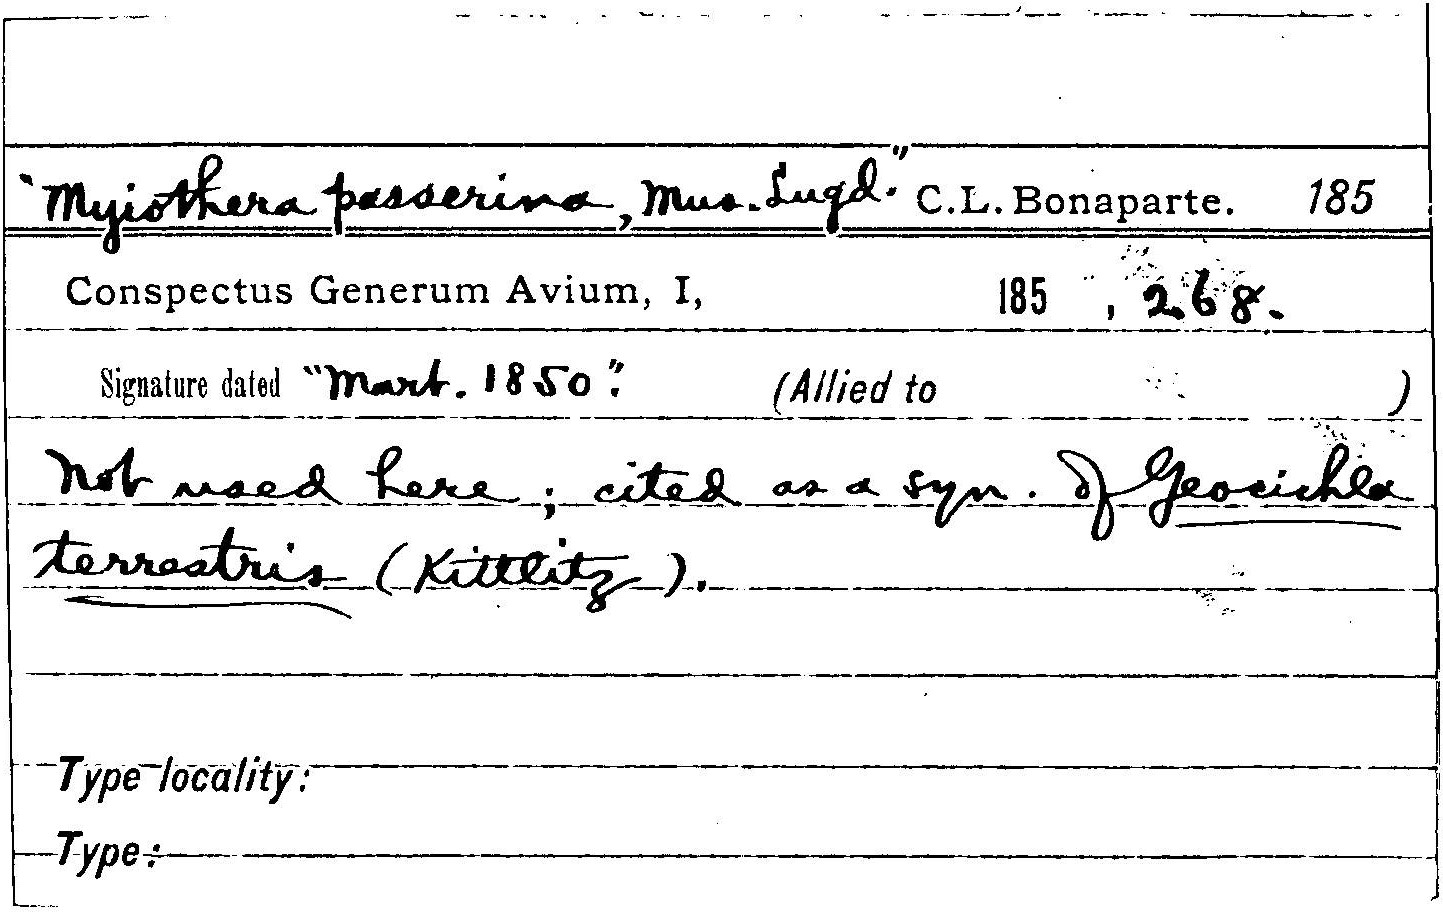 "Myiothera passerina, Mus. Lugd." C.L. Bonaparte. 185
Conspectus Generum Avium, I, 185 , 268.
Signature dated "Mart. 1850". (Allied to )
Not used here; cited as a syn. of Geocichla
terrestris (Kittlitz).
Type locality:
Type: